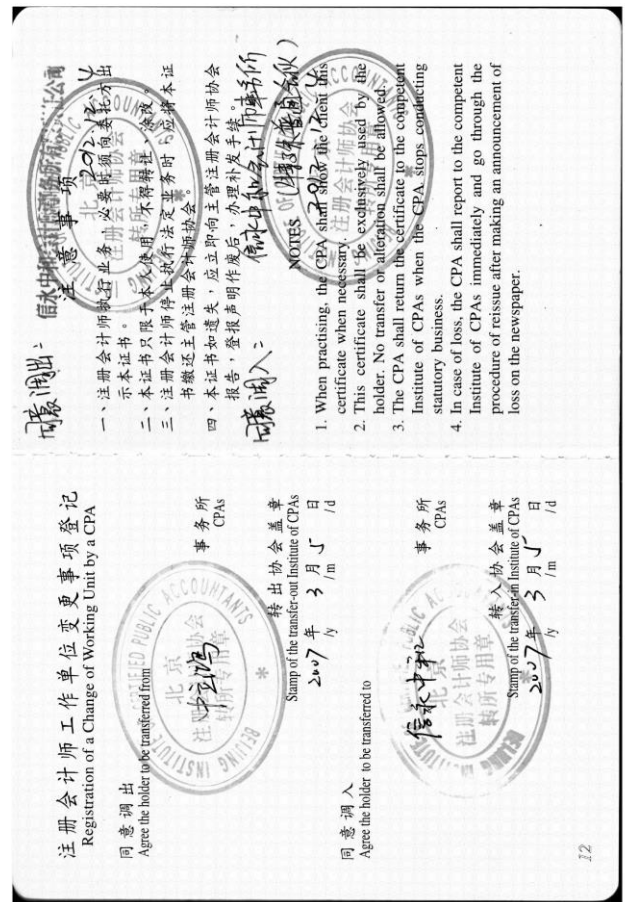 注册会计师工作单位变更事项登记
Registration of a Change of Working Unit by a CPA
同意调出
Agree the holder to be transferred from
事务所
CPAs
BEIJING INSTITUTE OF CERTIFIED PUBLIC ACCOUNTANTS
北京
注册会计师协会
转所专用章
转出协会盖章
Stamp of the transfer-out Institute of CPAs
2007年 3月5日
/y /m /d
同意调入
Agree the holder to be transferred to
信永中和
事务所
CPAs
北京
注册会计师协会
转所专用章
转入协会盖章
Stamp of the transfer-in Institute of CPAs
2007年 3月5日
/y /m /d
12
同意调出:
注意事项
2012.12.4
北京
注册会计师协会
转所专用章
一、注册会计师执行业务,必要时须向委托方出
示本证书。
二、本证书只限于本人使用,不得转让、涂改。
三、注册会计师停止执行法定业务时,应将本证
书缴还主管注册会计师协会。
四、本证书如遗失,应立即向主管注册会计师协会
报告,登报声明作废后,办理补发手续。
同意调入:
信永中和会计师事务所
(特殊普通合伙)
2012.12.4
注册会计师协会
转所专用章
NOTES
1. When practising, the CPA shall show the client this
certificate when necessary.
2. This certificate shall be exclusively used by the
holder. No transfer or alteration shall be allowed.
3. The CPA shall return the certificate to the competent
Institute of CPAs when the CPA stops conducting
statutory business.
4. In case of loss, the CPA shall report to the competent
Institute of CPAs immediately and go through the
procedure of reissue after making an announcement of
loss on the newspaper.